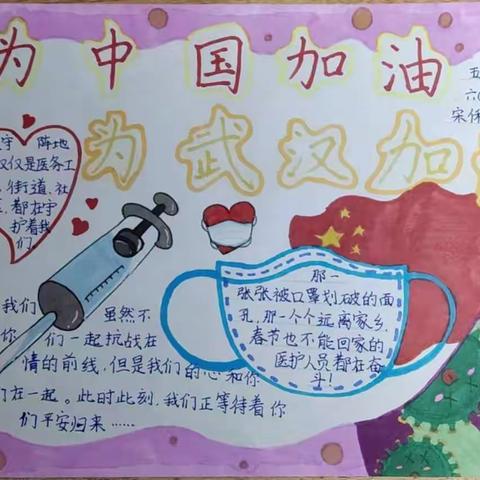 为中国加油
为武汉加
五
六(
宋
守 阵地
仅仅是医务工
街道、社
都在守
护着我
们。
那一
张张被口罩划破的面
孔,那一个个远离家乡,
春节也不能回家的
医护人员都在奋
斗!
我们 虽然不
你 们一起抗战在
情的前线,但是我们的心和你
们在一起。此时此刻,我们正等待着你
们平安归来……